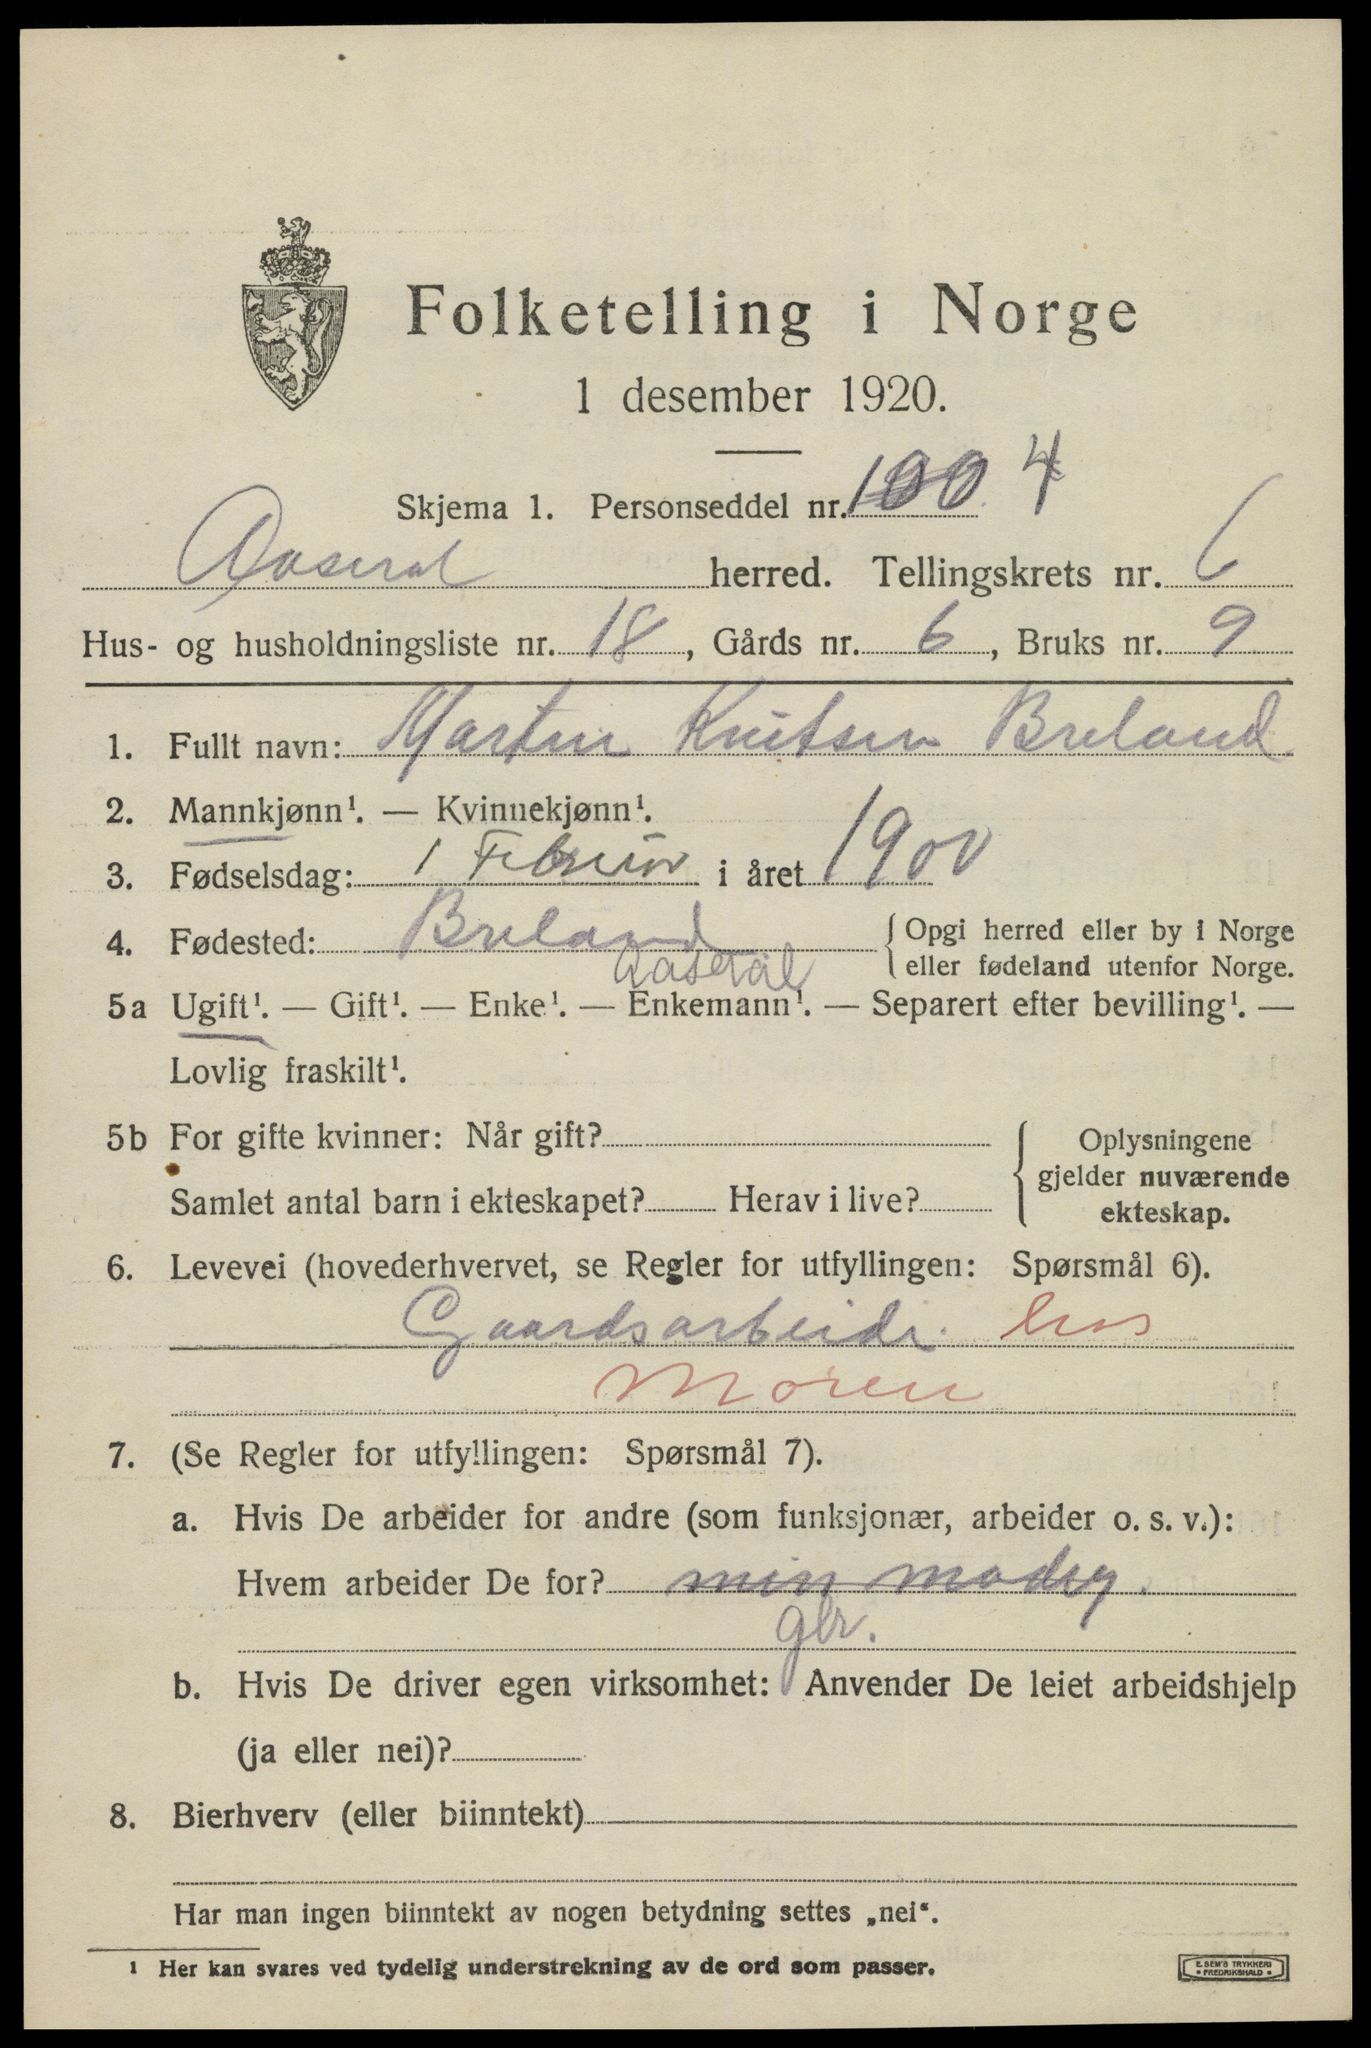 Folketelling i Norge
1 desember 1920.
Skjema 1. Personseddel nr. 100 4
Aaseral herred. Tellingskrets nr. 6
Hus- og husholdningsliste nr. 18, Gårds nr. 6, Bruks nr. 9
1. Fullt navn: Martin Knitsen Breland
2. Mannkjønn¹. — Kvinnekjønn¹.
3. Fødselsdag: 1 Februar i året 1900
4. Fødested: Breland Aaseral { Opgi herred eller by i Norge
eller fødeland utenfor Norge.
5a Ugift¹. — Gift¹. — Enke¹. — Enkemann¹. — Separert efter bevilling¹. —
Lovlig fraskilt¹.
5b For gifte kvinner: Når gift?
Samlet antal barn i ekteskapet? Herav i live?
{ Oplysningene
gjelder nuværende
ekteskap.
6. Levevei (hovederhvervet, se Regler for utfyllingen: Spørsmål 6).
Gaardsarbeidr. hos
Moren
7. (Se Regler for utfyllingen: Spørsmål 7).
a. Hvis De arbeider for andre (som funksjonær, arbeider o. s. v.):
Hvem arbeider De for? min moder.
gbr.
b. Hvis De driver egen virksomhet: Anvender De leiet arbeidshjelp
(ja eller nei)?
8. Bierhverv (eller biinntekt)
Har man ingen biinntekt av nogen betydning settes „nei“.
¹ Her kan svares ved tydelig understrekning av de ord som passer.
E. SEM'S TRYKKERI
• FREDRIKSHALD •